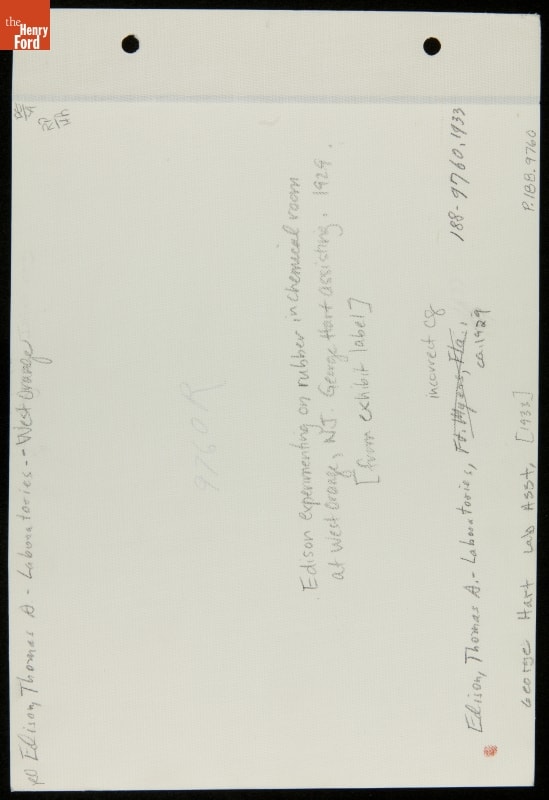 the
Henry
Ford
Edison, Thomas A - Laboratories -- West Orange
9760R
Edison experimenting on rubber in chemical room
at West Orange, NJ. George Hart assisting. 1929.
[from exhibit label]
incorrect cg
188-9760.1933
Edison, Thomas A. - Laboratories, Ft. Myers, Fla.,
ca. 1929
George Hart Lab Asst, [1933]
P.188.9760